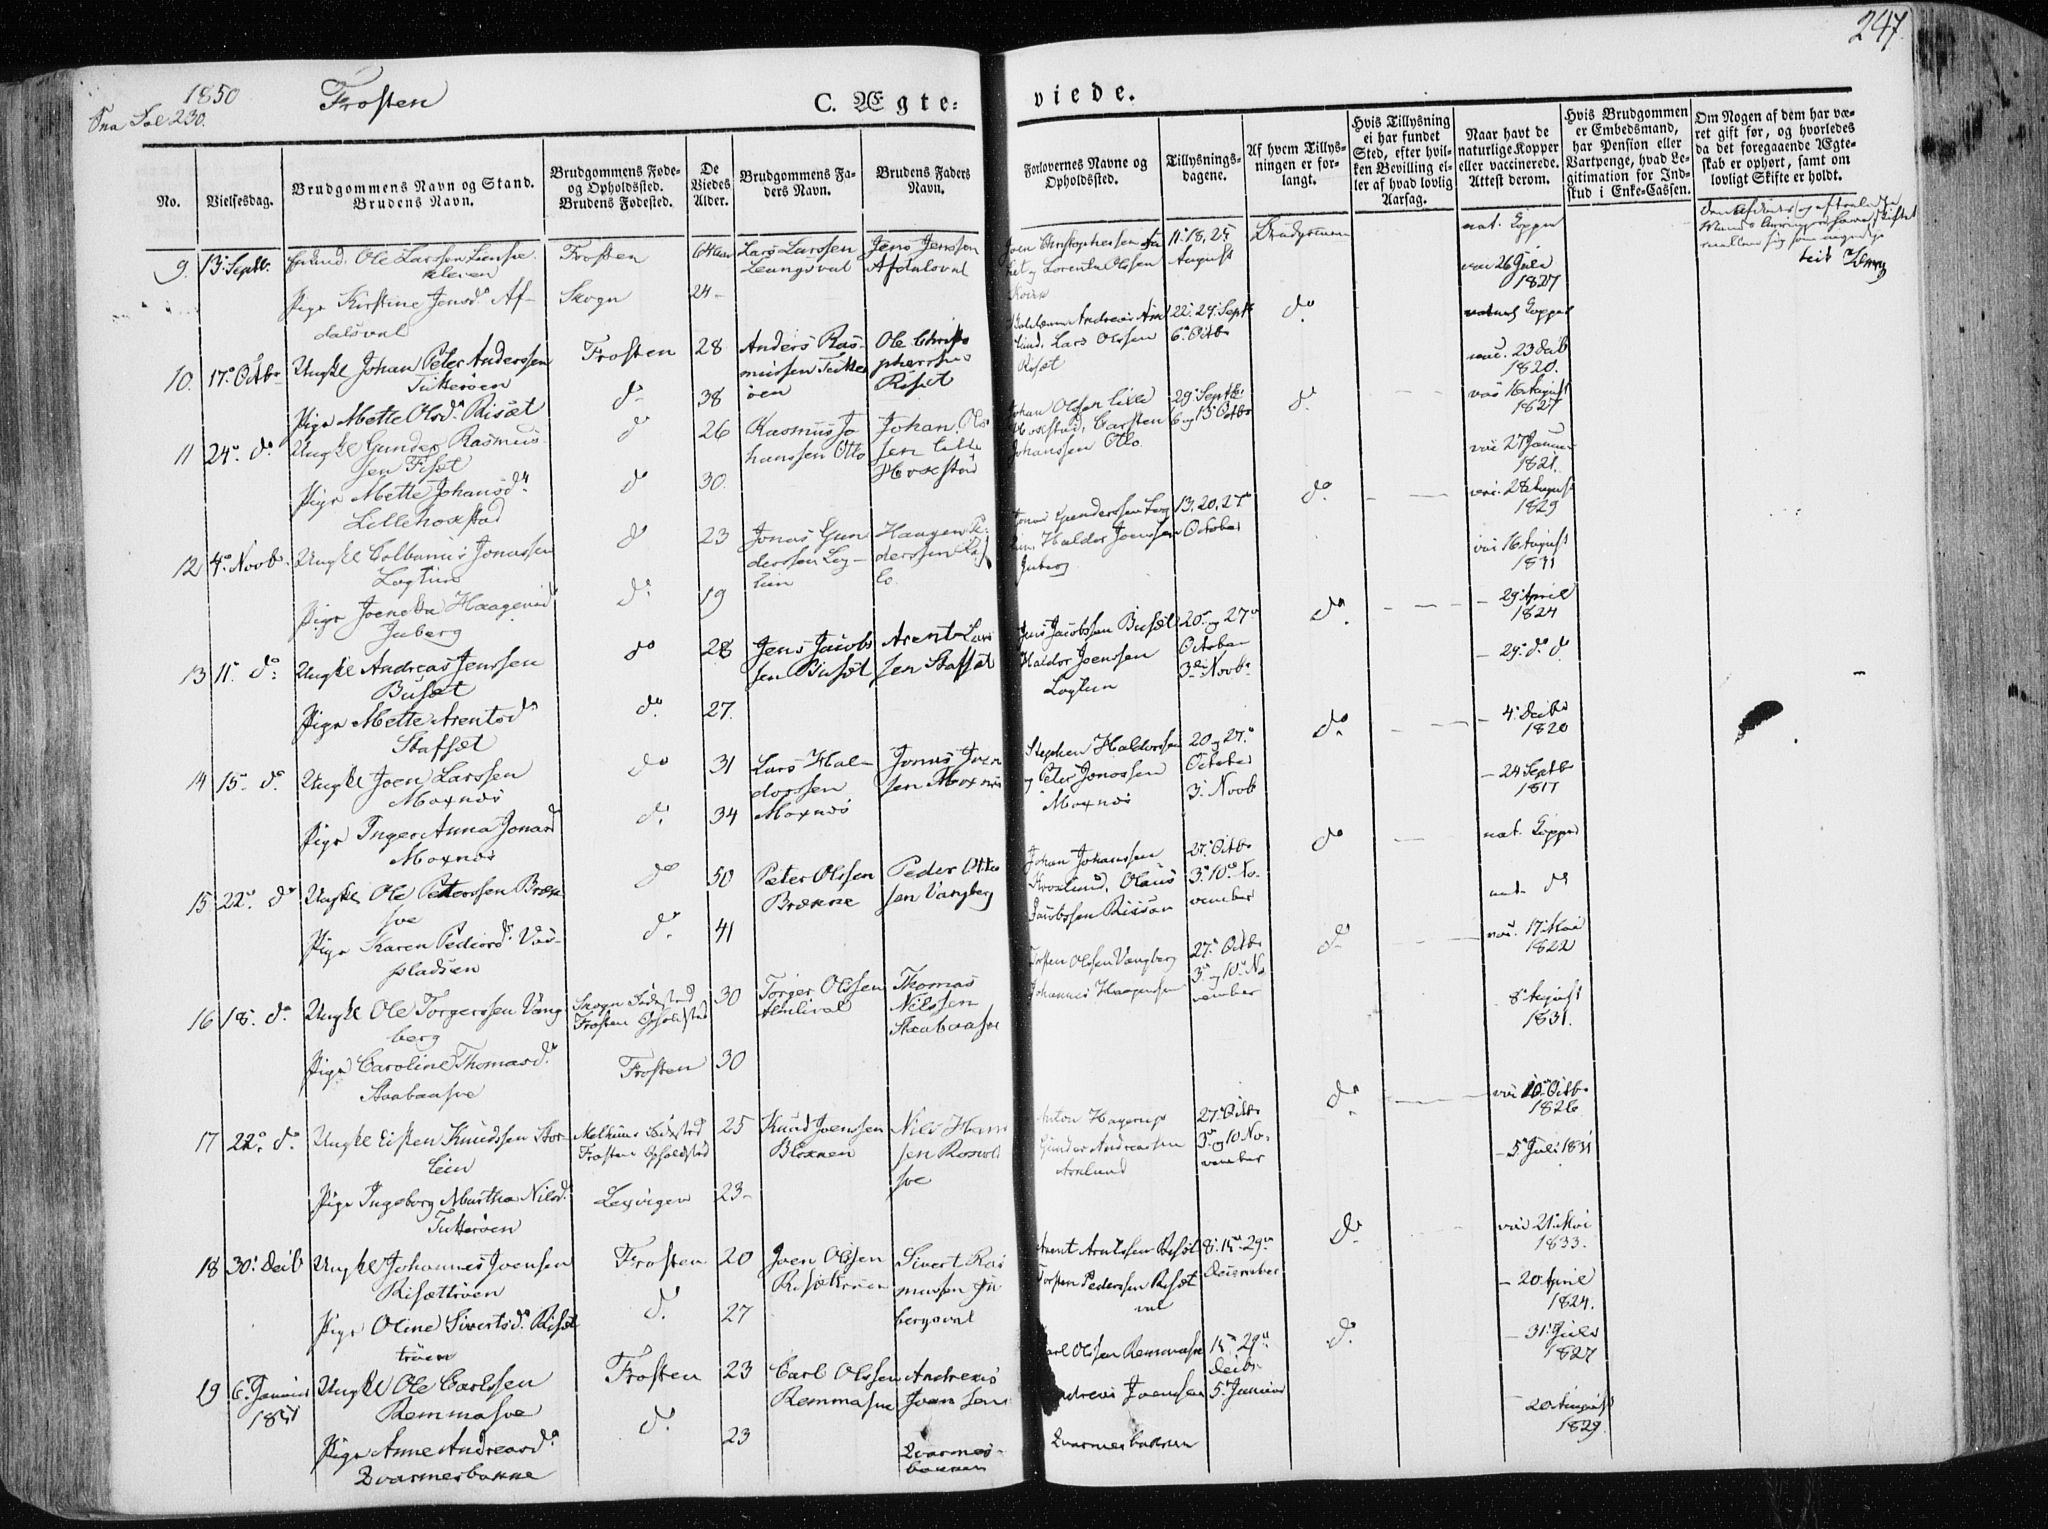 247
1850
Fra Sol 230.
Frosten
C. Ægte:
viede.
No.
Vielsesdag.
Brudgommens Navn og Stand.
Brudens Navn.
Brudgommens Føde-
og Opholdssted.
Brudens Fødested.
De
Viedes
Alder.
Brudgommens Fa-
ders Navn.
Brudens Faders
Navn.
Forlovernes Navne og
Opholdssted.
Tillysnings-
dagene.
Af hvem Tillys-
ningen er for-
langt.
Hvis Tillysning
ei har fundet
Sted, efter hvil-
ken Bevilling el-
ler af hvad lovlig
Aarsag.
Naar havt de
naturlige Kopper
eller vaccinerede.
Attest derom.
Hvis Brudgommen
er Embedsmand,
har Pension eller
Vartpenge, hvad Le-
gitimation for Ind-
skud i Enke-Cassen.
Om Nogen af dem har væ-
ret gift før, og hvorledes
da det foregaaende Ægte-
skab er ophørt, samt om
lovligt Skifte er holdt.
9. 13. Septb. Ole Larssen
kleven
Frosten
Lars Larssen
Leungsval
Jens Jenssen
Afdalsval
Joen Christophersen
og Lorents Olssen
11. 18, 25
August
nat. Kopper
Pige Kirstine Jensd. Af-
dalsval
Skogn
24-
vac 26 Juli
1827
10. 17. Octbr Ungkl Johan Peter Anderssen
Tutterøen
Frosten
28
Anders Ras-
mussen Tutter
øen
Ole Christo
phersen
Risæt
Andreas
Lars Olssen
Risæt
22. 29. Septb
6. Octbr
do
naturl Kopper
Pige Mette Olsd. Risæt
do
38
vac. 23 Decb
1820.
11 24. do Ungkl Gunder Rasmus-
sen Fisæt
do
26
Rasmus Jo
hanssen Otto
Johan Ols
sen Lille
Hoxstad
Johan Olssen Lille
Hoxstad, Carsten
Johanssen Otto.
29. Septbr
6 og 13 Octbr
do
vac 16 August
1827
Pige Mette Johansd.
Lillehoxstad
do
30.
vac 27 Januar
1821.
12 4. Novb. Ungkl Colbanus Jonassen
Logtun
do
23
Jonas Gun
derssen Log-
tun
Haagen Pe
derssen
Jonas Gunderssen
Haldor Joenssen
Juberg
13, 20, 27
October
do
vac. 28 August
1829
Pige Joenetta Haagensd
Juberg
do
19
vac 16 August
1831
13 11. do Ungkl Andreas Jenssen
Busæt
do
28
Jens Jacobs
sen Busæt
Arent Lars
sen Stafsæt
Jens Jacobssen Busæt
Haldor Joenssen
Logtun
20 og 27
October
3 Novb
do
- 29. April
1824
Pige Mette Arentsd
Stafsæt
do
27.
- 29. do do
14 15. do Ungkl Joen Larssen
Moxnæs
do
31
Lars Hal-
dorssen
Moxnæs
Jonas Joen
sen Moxnæs
Stephen Haldorssen
og Peter Jonassen
Moxnæs
20 og 27.
October
3. Novb
do
- 4. Decbr
1820
Pige Inger Anna Jonasd
Moxnæs
do
34
- 24 Septb
1817
15 22. do Ungkl Ole Peterssen Bræk
sve
do
50
Peter Olssen
Brække
Peder Otto
sen Vangberg
Johan Johanssen
Olaus
Jacobssen
27. Octbr
3. 10. No-
vember
do
nat. Kopper
Pige Karen Pedersd. Vas-
pladsen
do
41
nat. do
16 18. do Ungkl Ole Torgerssen Vang
berg
Skogn Fødested
Frosten Opholdsted
30
Torger Olssen
Thomas
Nilssen
Staabaasve
Torsten Olssen Vangberg
Johannes Haagensen
27. Octbr
3 og 10. No
vember
do
vac. 17. Mai
1822
Pige Caroline Thomasd.
Staabaasve
Frosten
30
- 8 August
1831.
17 22. do Ungkl Eisten Knudssen Stor-
lein
Melhuus Fødested
Frosten Opholdsted
25
Knud Joenssen
Blekken
Niels Hans
sen Rosvold
sve
Anton Hagerup
Gunder Andreassen
27. Octbr
3. og 10 No-
vember
do
vac 10. Octbr
1826
Pige Ingeborg Martha Nilsd.
Tutterøen
Lexvigen
23-
- 5 Juli 1831
18 30. Decb Ungkl Johannes Joensen
Risættrøen
Frosten
20
Joen Olssen
Risættrøen
Sivert Ras
mussen Ju
bergsval
Arent Arntssen Risæt
Torsten Pederssen Risæt
val
8. 15. 29.
December
do
vac 21. Mai
1833.
Pige Oline Sivertsd. Risæt
trøen
do
27
- 20 April
1824.
19 6. Januar
1851
Ungkl Ole Carlssen
Remmasve
Frosten
23
Carl Olssen
Remmasve
Andreas
Joenssen
Kvarnes-
bakken
Carl Olssen Remmasve
Andreas Joenssen
Kvarnesbakken
15. 29.
Decbr
5. Januar
do
- 31. Juli
1827
Pige Anne Andreasd.
Kvarnesbakke
do
23
- 20 August
1829.